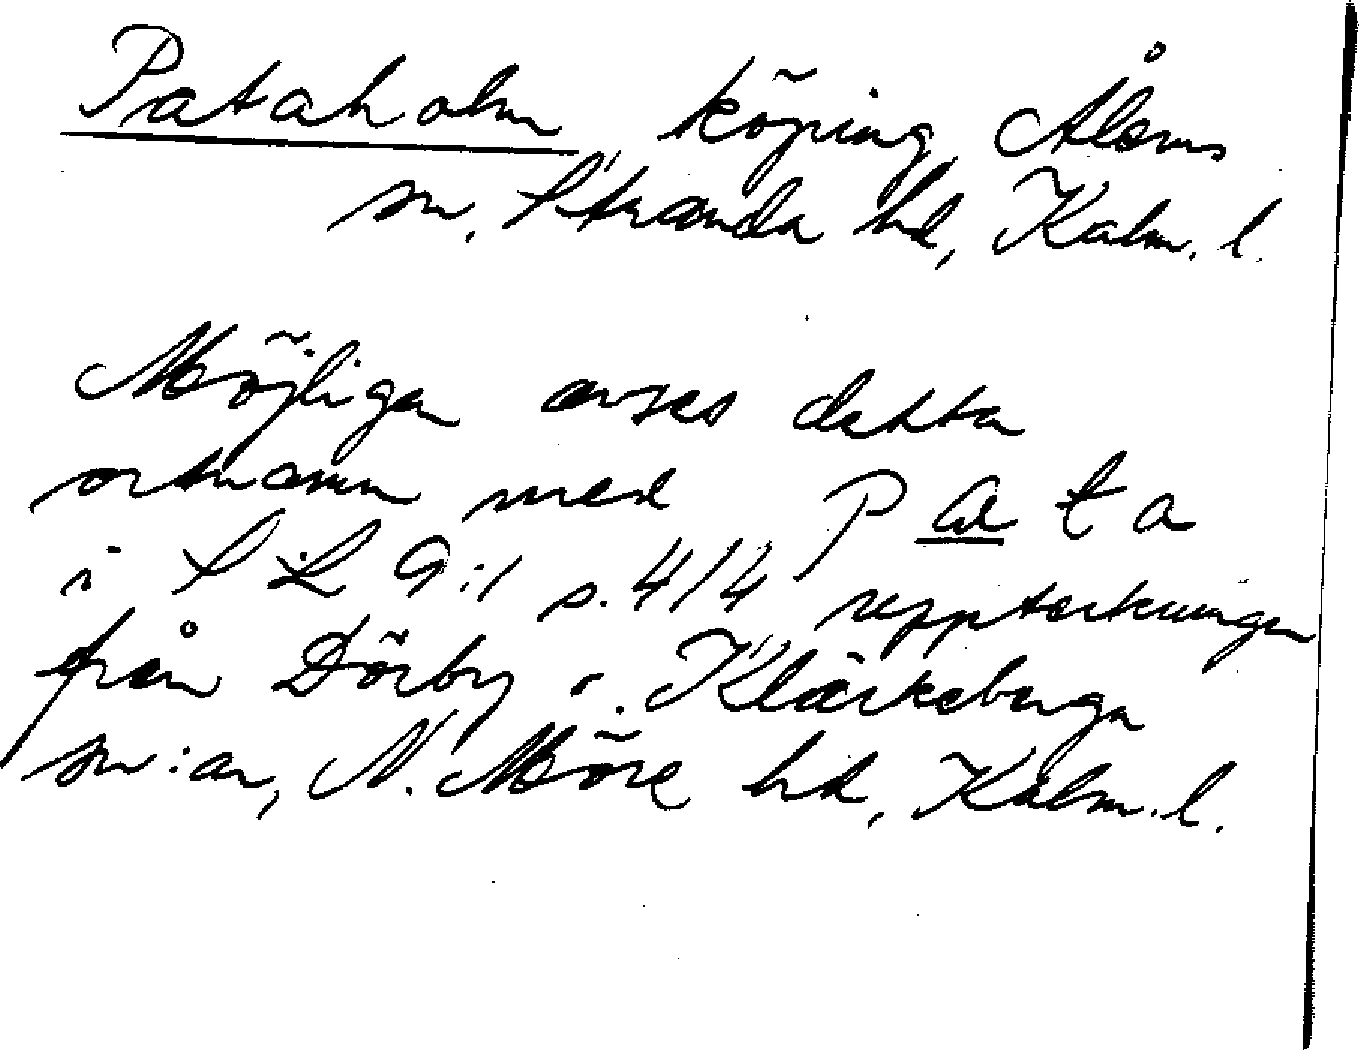 Pataholm, köping, Ålems
sn, Stranda hd, Kalm. l.
Möjligen avses detta
ortnamn med Pata
i SL 9:1 s. 414 uppteckningen
från Dörby o. Kläckeberga
sn:ar, N. Möre hd, Kalm. l.